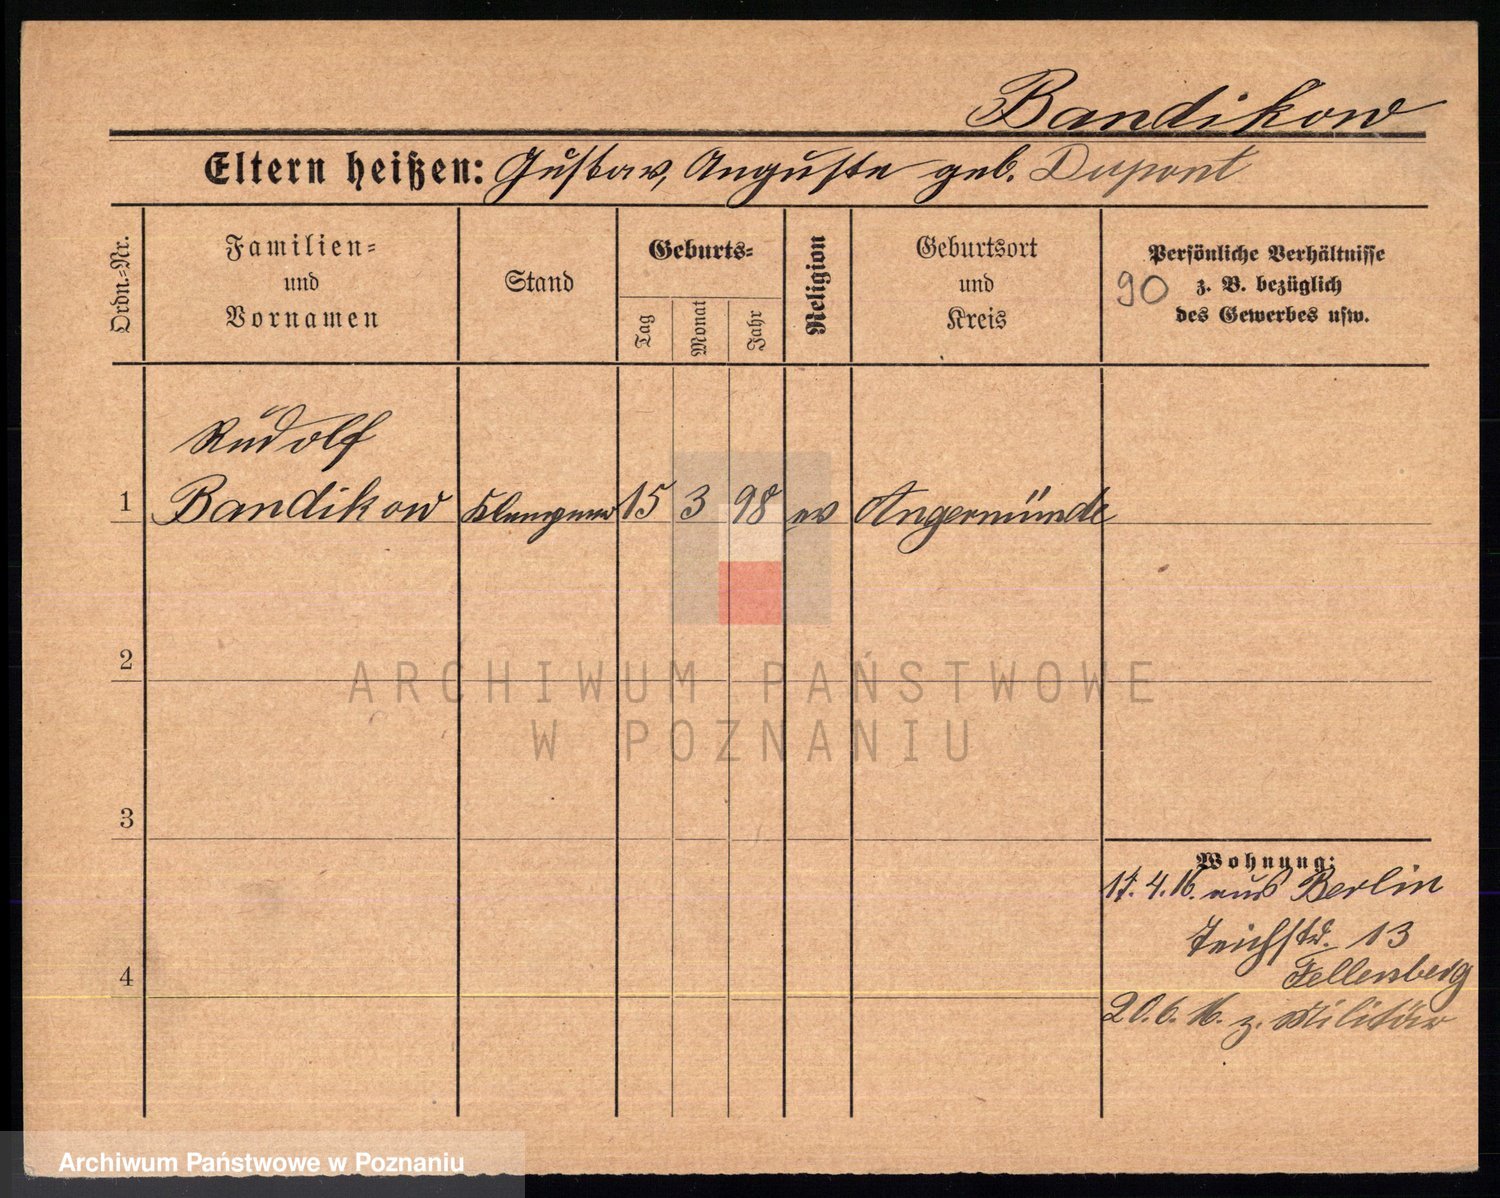 Bandikow
Eltern heißen: Gustav, Auguste geb. Dupont
Ordn.=Nr.
Familien=
und
Vornamen
Stand
Geburts=
Tag
Monat
Jahr
Religion
Geburtsort
und
Kreis
Persönliche Verhältnisse
90 z. B. bezüglich
des Gewerbes usw.
Rudolf
1 Bandikow Klempner 15 3 98 ev Angermünde
2
ARCHIWUM PAŃSTWOWE
W POZNANIU
3
Wohnung:
17. 4. 16. aus Berlin
Teichstr. 13
Fellensberg
4
20. 6. 16. z. Militär
Archiwum Państwowe w Poznaniu